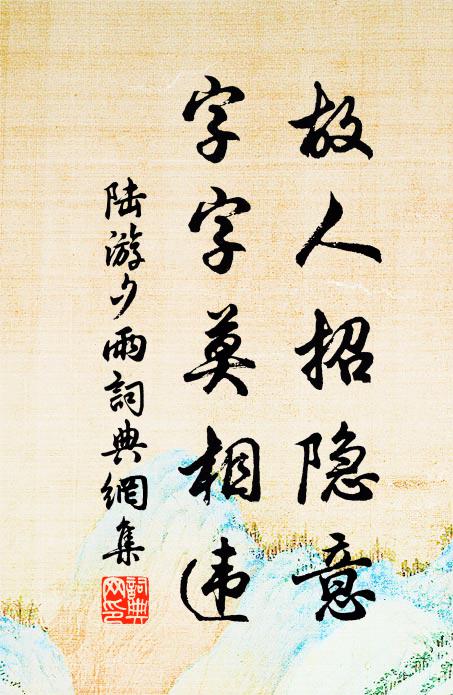 故人招隐意
字字莫相违
陆游夕雨詞典網集
詞典